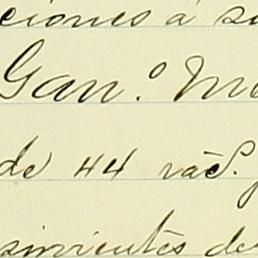 ciones á su
Gan.º Ma
de 44 racS.
sirvientes de